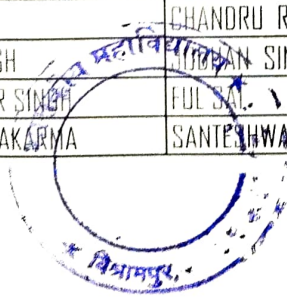 CHANDRU R
SH SIN
R SINGH FUL SAI
AKARMA SANTESHWA
महाविद्यालय
विश्रामपुर